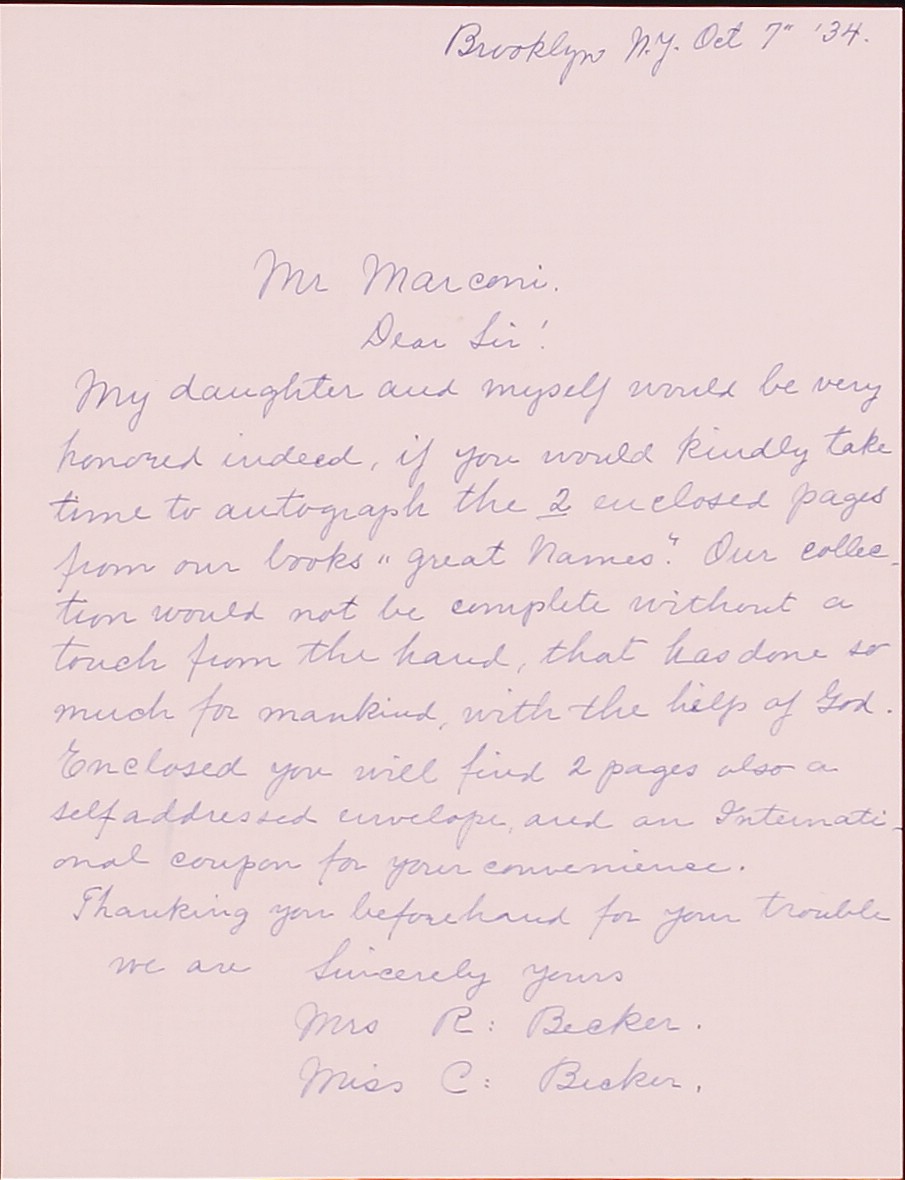 Brooklyn N.Y. Oct 7" '34.
Mr Marconi.
Dear Sir!
My daughter and myself would be very
honored indeed, if you would kindly take
time to autograph the 2 enclosed pages
from our books "great Names". Our collec-
tion would not be complete without a
touch from the hand, that has done so
much for mankind, with the help of God.
Enclosed you will find 2 pages also a
selfaddressed envelope, and an Internati-
onal coupon for your convenience.
Thanking you beforehand for your trouble
we are Sincerely yours
Mrs R: Becker.
Miss C: Becker.